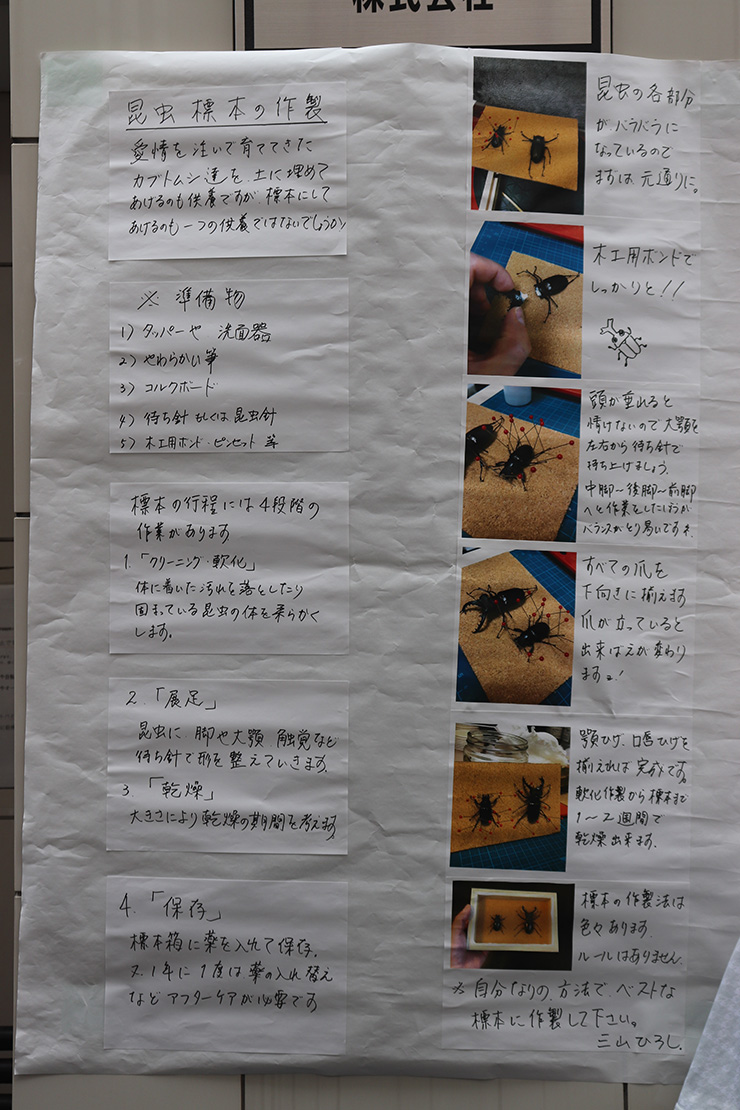 株式会社
昆虫標本の作製
愛情を注いで育ててきた
カブトムシ達を、土に埋めて
あげるのも供養ですが、標本にして
あげるのも一つの供養ではないでしょうか
※ 準備物
1) タッパーや 洗面器
2) やわらかい筆
3) コルクボード
4) 待ち針 もしくは昆虫針
5) 木工用ボンド・ピンセット 等
標本の行程には4段階の
作業があります
1.「クリーニング・軟化」
体に着いた汚れを落としたり
固まっている昆虫の体を柔らかく
します。
2.「展足」
昆虫に、脚や大顎、触覚など
待ち針で形を整えていきます。
3.「乾燥」
大きさにより乾燥の期間を考えます
4.「保存」
標本箱に薬を入れて保存。
又、1年に1度は薬の入れ替え
などアフターケアが必要です
昆虫の各部分
が、バラバラに
なっているので
まずは元通りに。
木工用ボンドで
しっかりと!!
頭が垂れると
情けないので大顎を
左右から待ち針で
持ち上げましょう。
中脚〜後脚〜前脚
へと作業をしたほうが
バランスがとり易いです
すべての爪を
下向きに揃えます
爪が立っていると
出来ばえが変わり
ます
顎ひげ、口唇ひげを
揃えれば完成です。
軟化作製から標本まで
1〜2週間で
乾燥出来ます。
標本の作製法は
色々あります。
ルールはありません。
※自分なりの、方法で、ベストな
標本に作製して下さい。
三山ひろし.